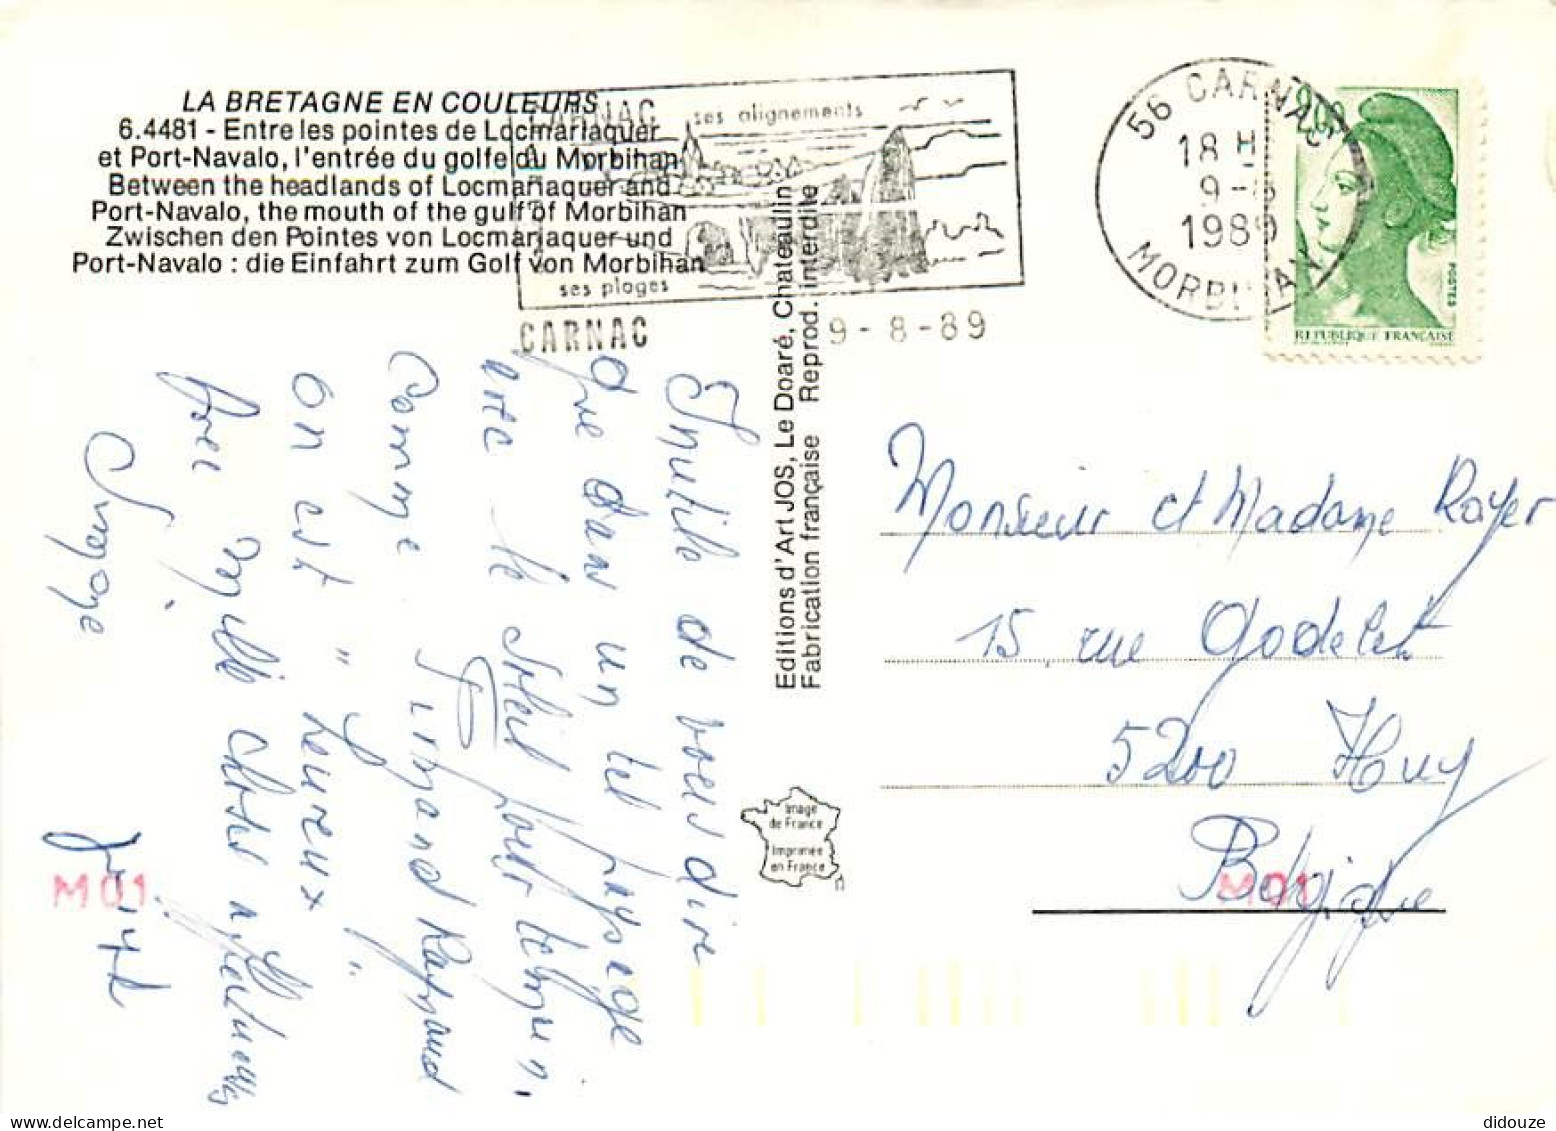 LA BRETAGNE EN COULEURS
6.4481 - Entre les pointes de Locmariaquer
et Port-Navalo, l'entrée du golfe du Morbihan
Between the headlands of Locmariaquer and
Port-Navalo, the mouth of the gulf of Morbihan
Zwischen den Pointes von Locmariaquer und
Port-Navalo : die Einfahrt zum Golf von Morbihan
CARNAC
ses alignements
ses plages
CARNAC
9-8-89
56 CARNAC
18 H
9-8
1989
MORBIHAN
POSTES
REPUBLIQUE FRANÇAISE
Inutile de vous dire
que dans un tel paysage
avec le soleil pour témoin,
comme Fernand Raynaud
on est " heureux "
Avec mille chtes affectueuses
Simone
Editions d'Art JOS, Le Doaré, Chateaulin
Fabrication française Reprod. interdite
Image
de France
Imprimée
en France
Monsieur et Madame Royer
15, rue Godelet
5200 Huy
Belgique
M01
M01
didouze